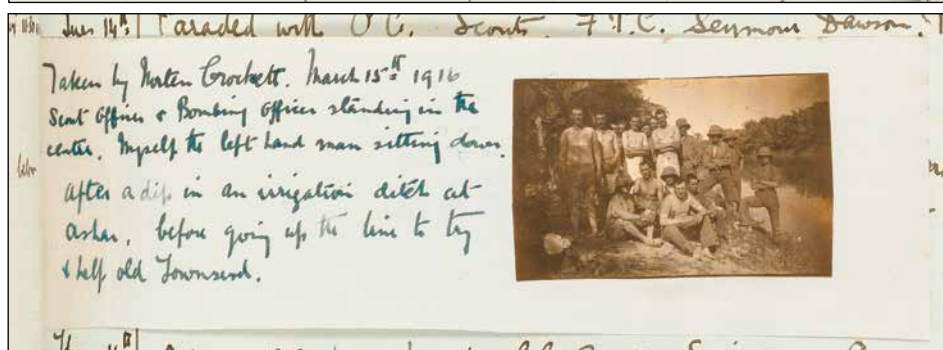 Tues 14th Paraded with O C. Scouts. F. T. C. Seymour Dawson.
Taken by Morten Crockett. March 15th 1916
Scout Officer & Bombing Officer standing in the
center. Myself the left hand man sitting down.
after a dip in an irrigation ditch at
ashar, before going up the line to try
& help old Townsend.